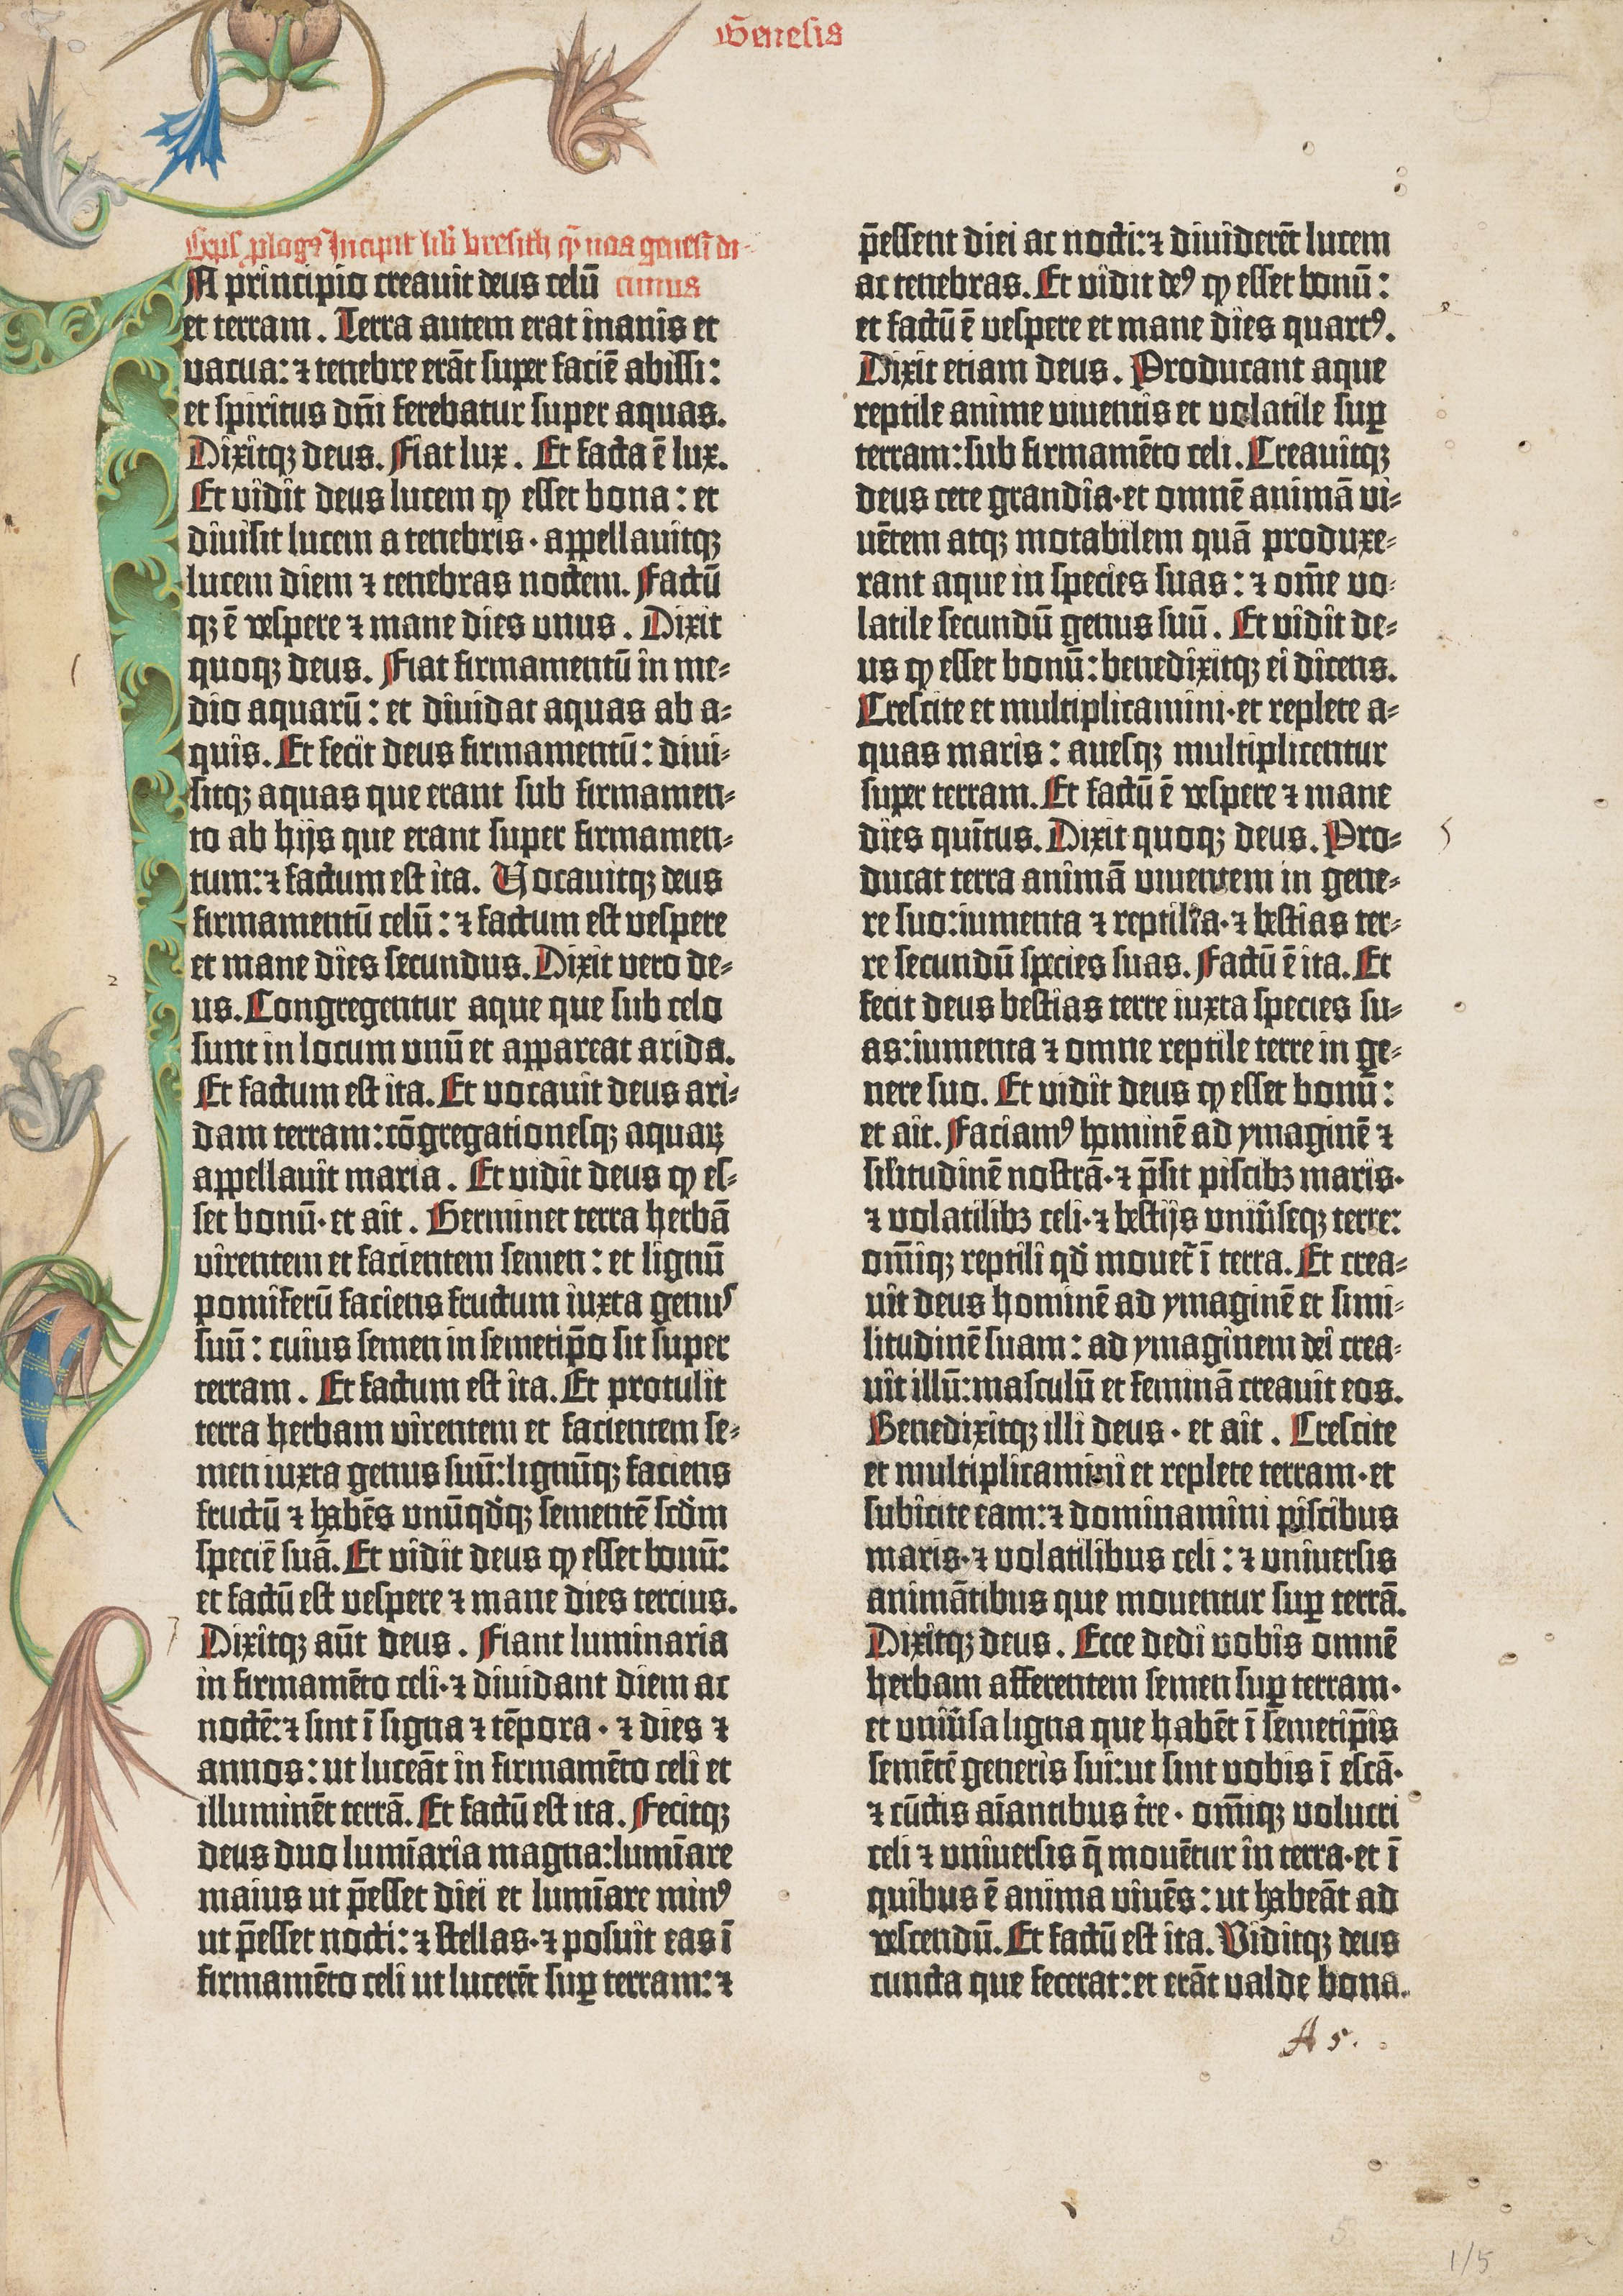 Genesis
Expl' plogꝰ Incipit lib' bresith qȝ nos genesi' di-
N principio creauit deus celū cimus
et terram. Terra autem erat inanis et
vacua: ⁊ tenebre erāt super faciē abissi:
et spiritus dn̄i ferebatur super aquas.
Dixitqȝ deus. Fiat lux. Et facta ē lux.
Et vidit deus lucem ꝙ esset bona: et
diuisit lucem a tenebris· appellauitqȝ
lucem diem ⁊ tenebras noctem. Factū
qȝ ē vespere ⁊ mane dies vnus. Dixit
quoqȝ deus. Fiat firmamentū in me-
dio aquarū: et diuidat aquas ab a-
quis. Et fecit deus firmamentū: diui-
sitqȝ aquas que erant sub firmamen-
to ab hijs que erant super firmamen-
tum: ⁊ factum est ita. Vocauitqȝ deus
firmamentū celū: ⁊ factum est vespere
et mane dies secundus. Dixit vero de-
us. Congregentur aque que sub celo
sunt in locum vnū et appareat arida.
Et factum est ita. Et vocauit deus ari-
dam terram: cōgregationesqȝ aquaꝝ
appellauit maria. Et vidit deus ꝙ es-
set bonū· et ait. Germinet terra herbā
virentem et facientem semen: et lignū
pomiferū faciens fructum iuxta genus
suū: cuius semen in semetip̄o sit super
terram. Et factum est ita. Et protulit
terra herbam virentem et facientem se-
men iuxta genus suū: lignūqȝ faciens
fructū ⁊ habēs vnūqd̄qȝ sementē scd̄m
speciē suā. Et vidit deus ꝙ esset bonū:
et factū est vespere ⁊ mane dies tercius.
Dixitqȝ aūt deus. Fiant luminaria
in firmamēto celi· ⁊ diuidant diem ac
noctē: ⁊ sint ī signa ⁊ tēpora· ⁊ dies ⁊
annos: ut luceāt in firmamēto celi et
illuminēt terrā. Et factū est ita. Fecitqȝ
deus duo lumīaria magna: lumīare
maius ut p̄esset diei et lumīare minꝰ
ut p̄esset nocti: ⁊ stellas· ⁊ posuit eas ī
firmamēto celi ut lucerēt suꝑ terram: ⁊
p̄essent diei ac nocti: ⁊ diuiderēt lucem
ac tenebras. Et vidit deꝰ ꝙ esset bonū:
et factū ē vespere et mane dies quartꝰ.
Dixit etiam deus. Producant aque
reptile anime viuentis et volatile suꝑ
terram: sub firmamēto celi. Creauitqȝ
deus cete grandia· et omnē animā vi-
uētem atqȝ motabilem quā produxe-
rant aque in species suas: ⁊ om̄e vo-
latile secundū genus suū. Et vidit de-
us ꝙ esset bonū: benedixitqȝ ei dicens.
Crescite et multiplicamini· et replete a-
quas maris: auesqȝ multiplicentur
super terram. Et factū ē vespere ⁊ mane
dies quītus. Dixit quoqȝ deus. Pro-
ducat terra animā viuentem in gene-
re suo: iumenta ⁊ reptilia· ⁊ bestias ter-
re secundū species suas. Factū ē ita. Et
fecit deus bestias terre iuxta species su-
as: iumenta ⁊ omne reptile terre in ge-
nere suo. Et vidit deus ꝙ esset bonū:
et ait. Faciamꝰ hominē ad ymaginē ⁊
sil̄itudinē nostrā· ⁊ p̄sit piscibȝ maris·
⁊ volatilibȝ celi· ⁊ bestijs vniūseqȝ terre:
om̄iqȝ reptili qd̄ mouet̄ ī terra. Et crea-
uit deus hominē ad ymaginē et simi-
litudinē suam: ad ymaginem dei crea-
uit illū: masculū et feminā creauit eos.
Benedixitqȝ illi deus· et ait. Crescite
et multiplicamini et replete terram· et
subicite eam: ⁊ dominamini piscibus
maris· ⁊ volatilibus celi: ⁊ vniuersis
animātibus que mouentur suꝑ terrā.
Dixitqȝ deus. Ecce dedi vobis omnē
herbam afferentem semen suꝑ terram·
et vniūsa ligna que habēt ī semetip̄is
semētē generis sui: ut sint vobis ī escā·
⁊ cūctis aīantibus tr̄e· om̄iqȝ volucri
celi ⁊ vniuersis q̄ mouētur in terra· et ī
quibus ē anima viuēs: ut habeāt ad
vescendū. Et factū est ita. Viditqȝ deus
cuncta que fecerat: et erāt valde bona.
A 5.
1/5